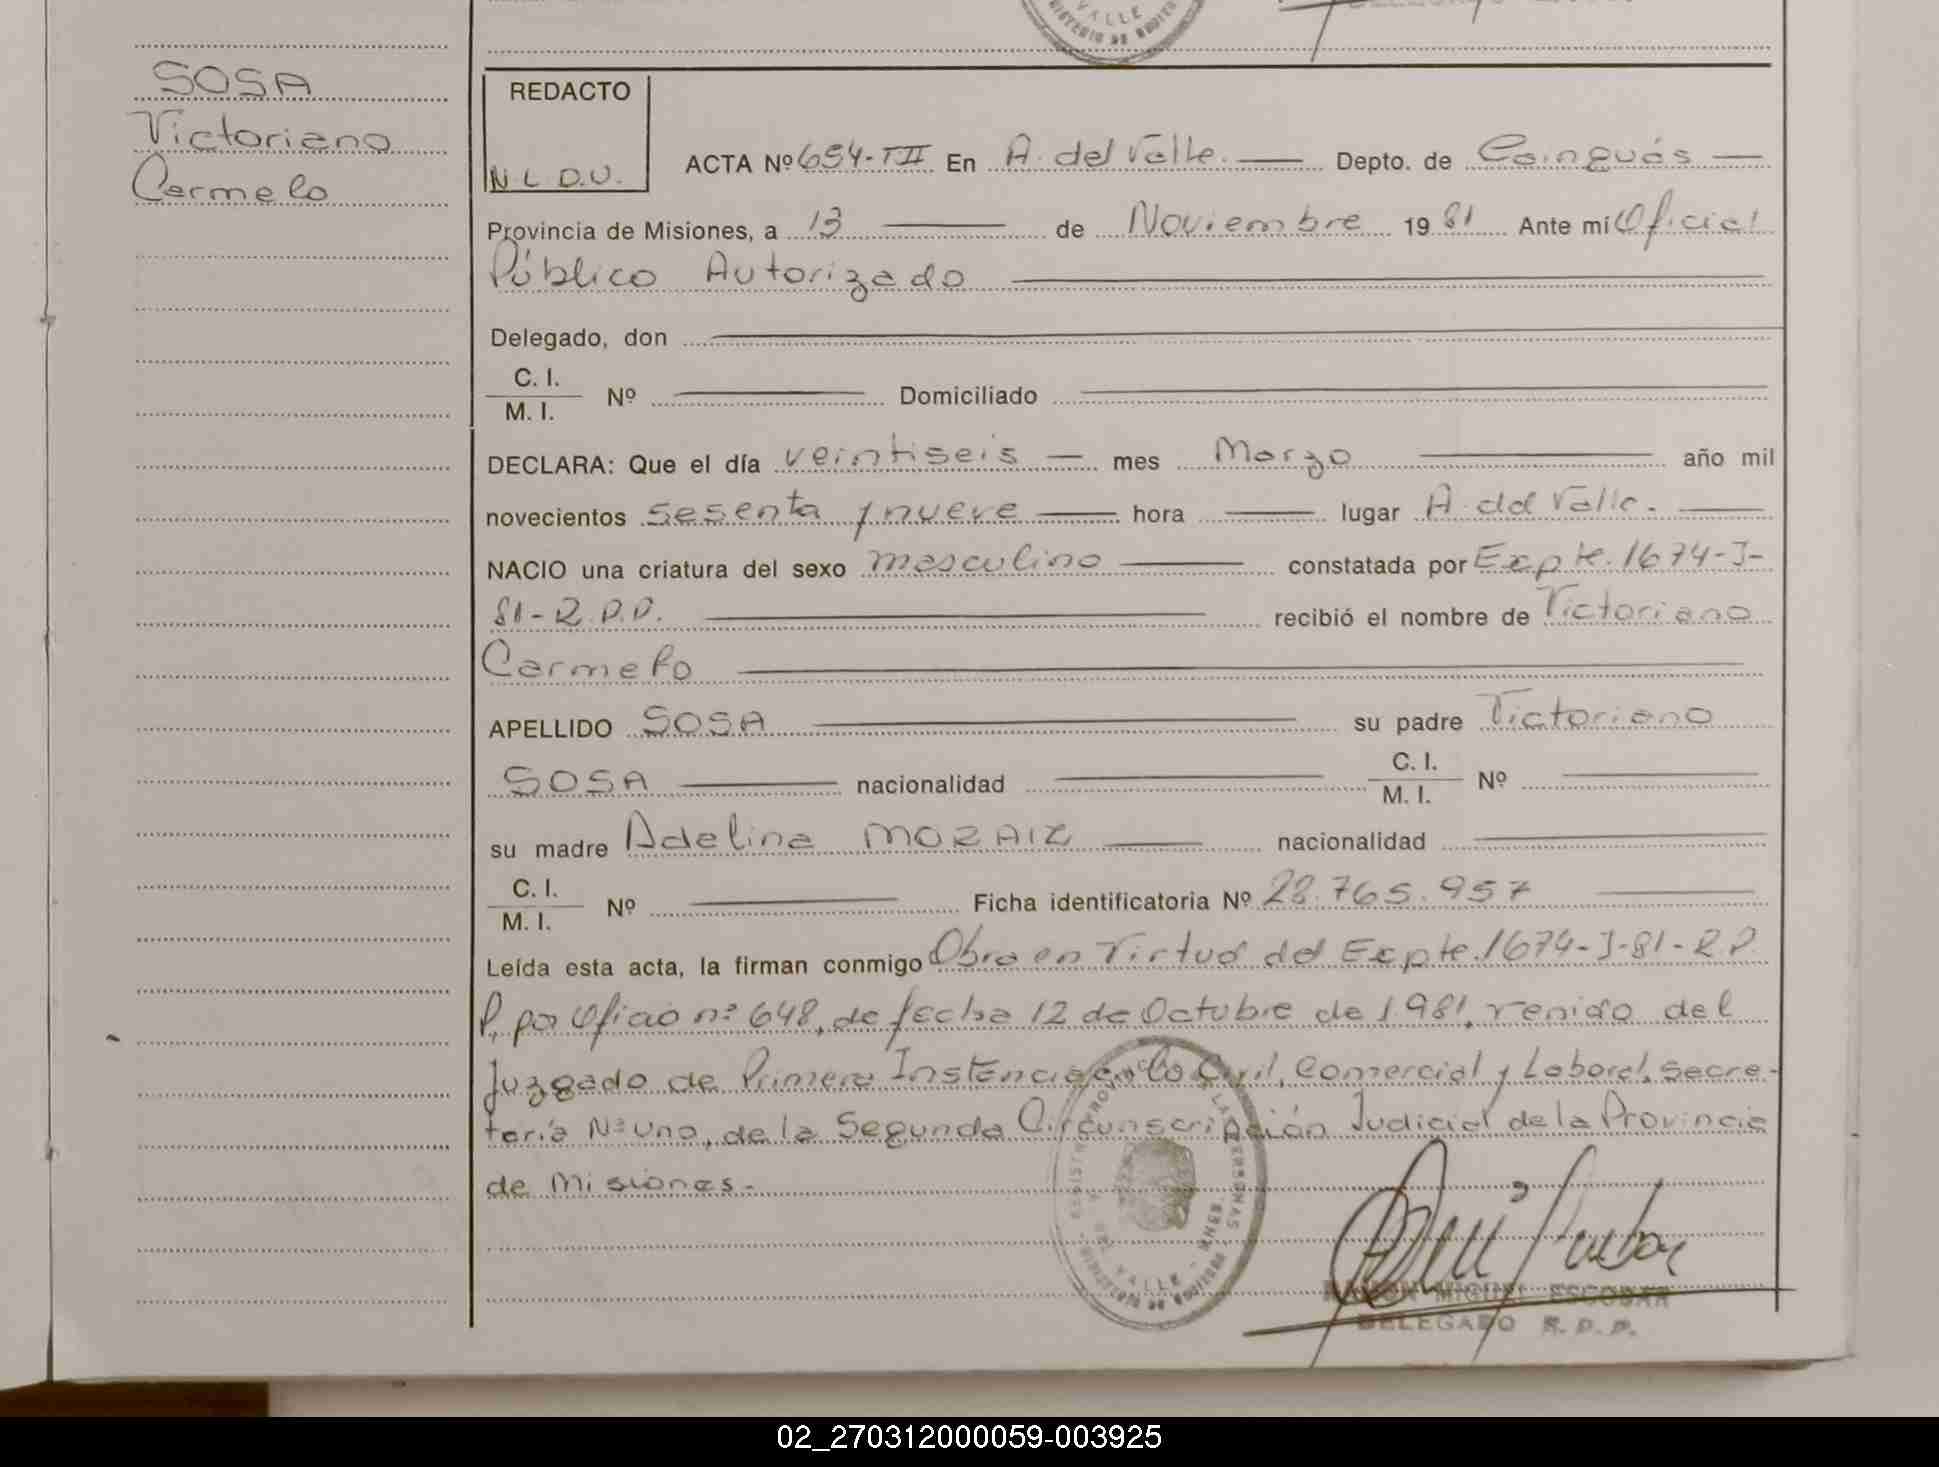 VALLE
SOSA
Victoriano
Carmelo
REDACTO
N L D.V.
ACTA Nº 654-TII En A. del Valle. Depto. de Cainguás
Provincia de Misiones, a 13 de Noviembre 19 81 Ante mi Oficial
Público Autorizado
Delegado, don
C. I.
M. I. Nº Domiciliado
DECLARA: Que el día veintiseis mes Marzo año mil
novecientos sesenta y nueve hora lugar A. del Valle.
NACIO una criatura del sexo masculino constatada por Expte. 1674-J-
81-R.P.P. recibió el nombre de Victoriano
Carmelo
APELLIDO SOSA su padre Victoriano
SOSA nacionalidad C. I.
M. I. Nº
su madre Adelina MORAIZ nacionalidad
C. I.
M. I. Nº Ficha identificatoria Nº 28.765.957
Leída esta acta, la firman conmigo Obra en Virtud del Expte. 1674-J-81-R.P.
P, por Oficio nº 648, de fecha 12 de Octubre de 1981, venido del
Juzgado de Primera Instancia en lo Civil, Comercial y Laboral, Secre-
taría Nº Uno, de la Segunda Circunscripción Judicial de la Provincia
de Misiones.-
VALLE
RAMON MIGUEL ESCOBAR
DELEGADO R. P. P.
02_270312000059-003925